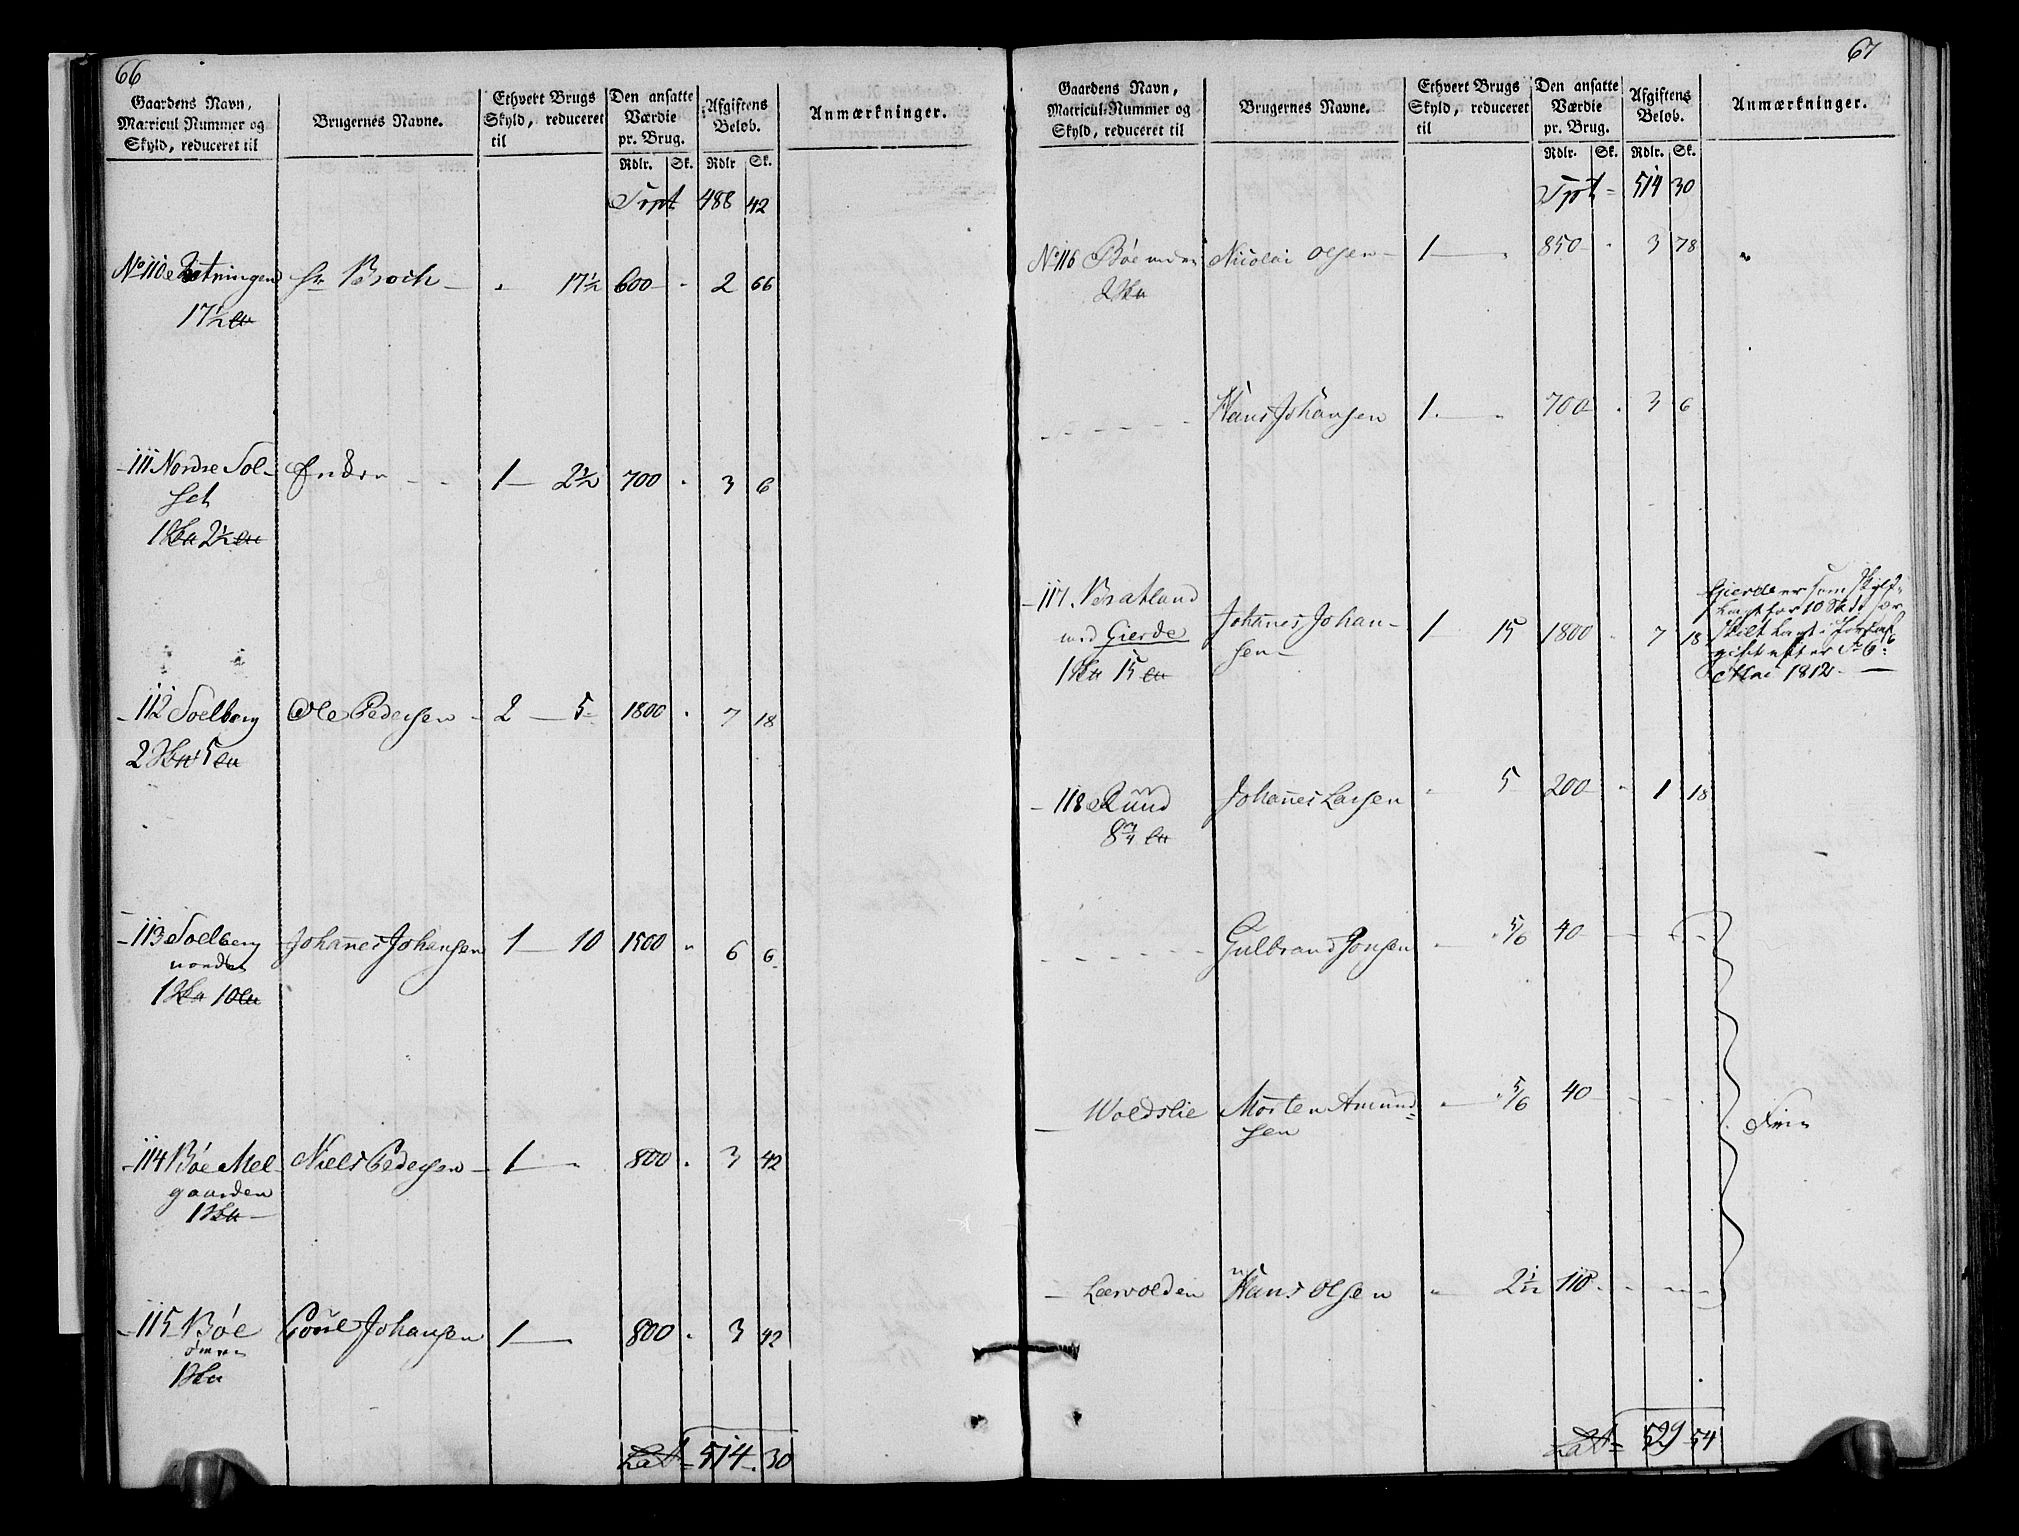 66
Gaardens Navn,
Matricul Nummer og
Skyld, reduceret til
Brugernes Navne.
Ethvert Brugs
Skyld, reduceret
til
Den ansatte
Værdie
pr. Brug.
Rdlr. Sk.
Afgiftens
Beløb.
Rdlr Sk.
Anmærkninger.
Trpt 488 42
No 110 17½ 600 - 2 66
Hr Broch
17½
111 Nordre Sol- 1 — 2½ 700 - 3 6
set
1 2½
112 Soelberg Ole Pedersen 2 — 5 1800 - 7 18
2 5
113 Soelberg Johanes Johansen 1 — 10 1500 " 6 6
nordre
1 10
114 Bøe Mel- Niels Pedersen 1 — 800 - 3 42
gaarden
1
115 Bøe Poul Johansen 1 — 800 - 3 42
1
Lat 514 30
67
Gaardens Navn,
Matricul-Nummer og
Skyld, reduceret til
Brugernes Navne.
Ethvert Brugs
Skyld, reduceret
til
Den ansatte
Værdie
pr. Brug.
Rdlr. Sk.
Afgiftens
Beløb.
Rdlr. Sk.
Anmærkninger.
Trpt 514 30
No 116 Bøe Nicolai Olsen 1 — 850 - 3 78
2
Hans Johansen 1 — 700 - 3 6
117 Bratland Johanes Johan- 1 15 1800 7 18
med Gierde sen
1 15
Gierde er som
Mai 1812
118 Ruud Johanes Larsen 5 200 - 1 18
8¾
Gulbrand Jonsen 5/6 40
Woldslie Morten Amund- 5/6 40
sen
Leervolden Hans Olsen 2½ 110
Lat 529 54